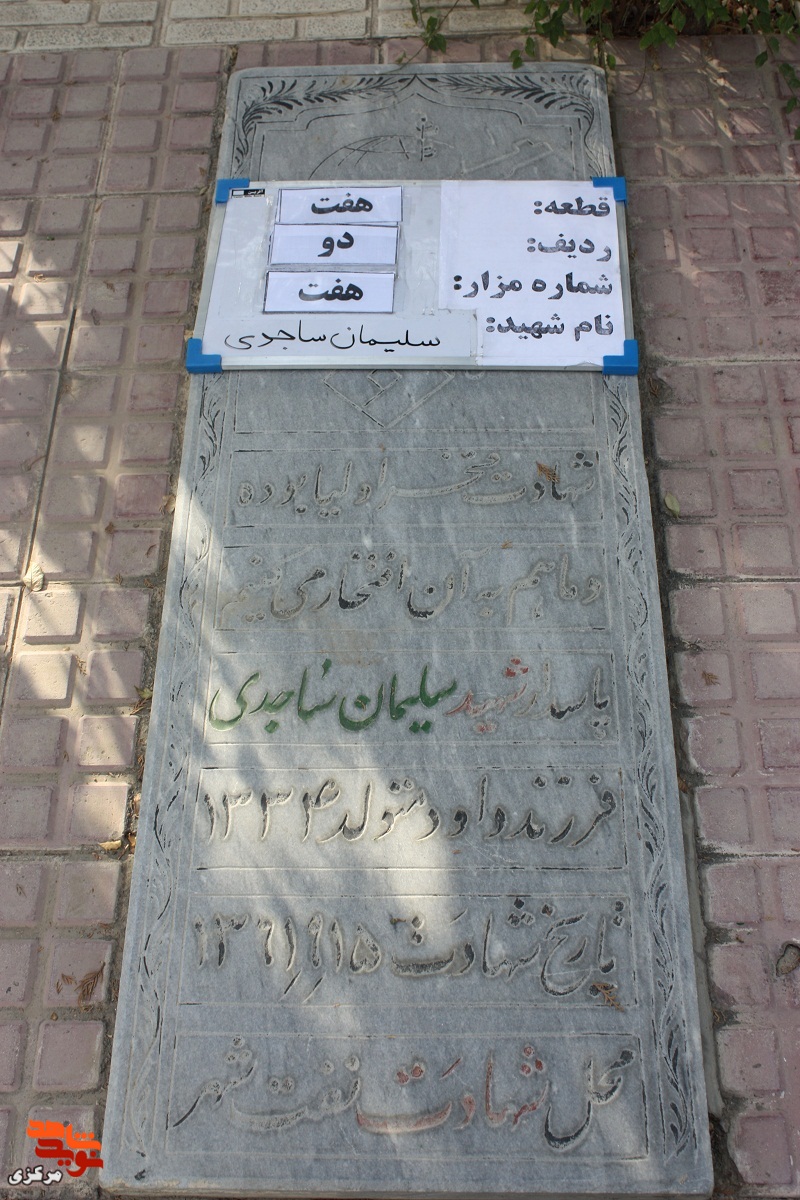 قطعه: هفت
ردیف: دو
شماره مزار: هفت
نام شهید: سلیمان ساجدی
شهادت فخر اولیا بوده
و ما هم به آن افتخار می کنیم
پاسدار شهید سلیمان ساجدی
فرزند داود متولد ۱۳۳۴
تاریخ شهادت ۱۳۶۱/۹/۱۵
محل شهادت نفت شهر
نوید شاهد
مرکزی